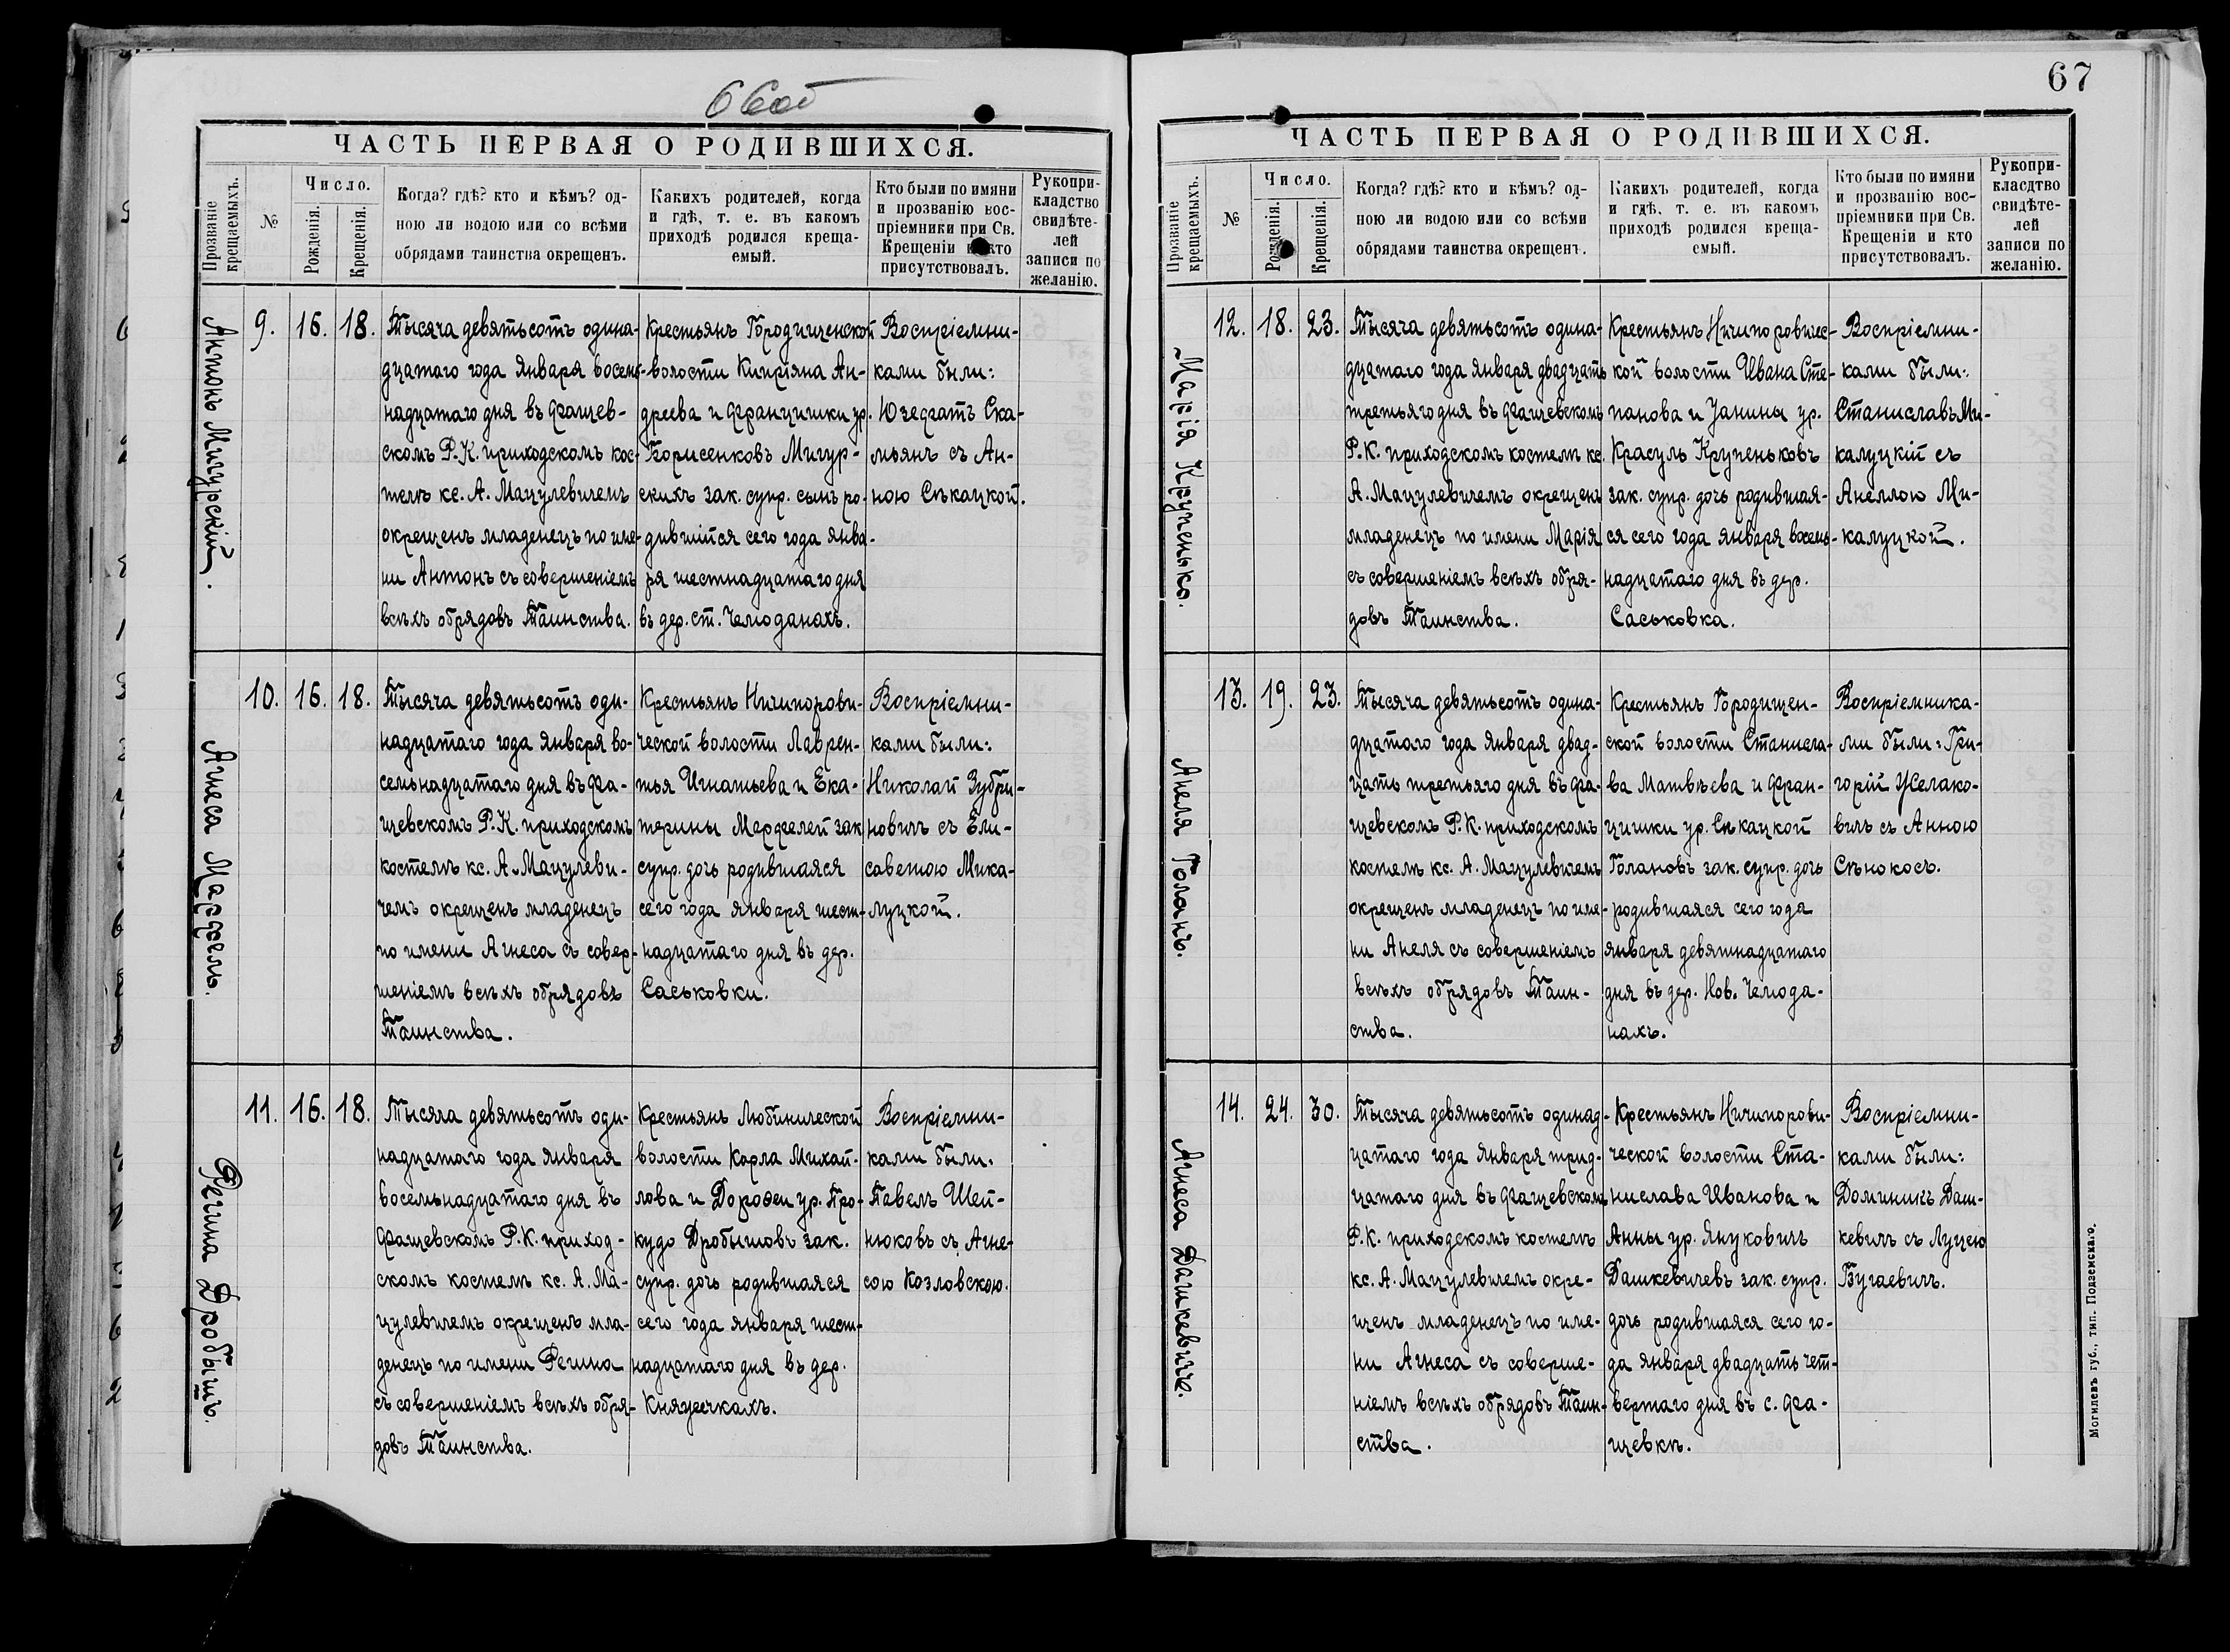 66об
ЧАСТЬ ПЕРВАЯ О РОДИВШИХСЯ.
Прозваніе
крещаемыхъ.
№
Число.
Рожденія.
Крещенія.
Когда? гдѣ? кто и кѣмъ? од-
ною ли водою или со всѣми
обрядами таинства окрещенъ.
Какихъ родителей, когда
и гдѣ, т. е. въ какомъ
приходѣ родился креща-
емый.
Кто были по имяни
и прозванію вос-
пріемники при Св.
Крещеніи и кто
присутствовалъ.
Рукопри-
кладство
свидѣте-
лей
записи по
желанію.
Антонъ Мигурскій.
9.
16.
18.
Тысяча девятьсотъ одина-
дцатаго года Января восемь-
надцатаго дня въ Фащев-
скомъ Р. К. приходскомъ кос-
телѣ кс. А. Мацулевичемъ
окрещенъ младенецъ по име-
ни Антонъ съ совершеніемъ
всѣхъ обрядовъ Таинства.
Крестьянъ Городищенской
волости Кипріяна Ан-
дреева и Францишки ур.
Борисенковъ Мигур-
скихъ зак. супр. сынъ ро-
дившійся сего года янва-
ря шестнадцатаго дня
въ дер. ст. Чемоданахъ.
Воспріемни-
ками были:
Юзефатъ Ска-
мьянъ съ Ан-
ною Сѣкацкой.
Агнеса Марфель.
10.
16.
18.
Тысяча девятьсотъ оди-
надцатаго года Января во-
семьнадцатаго дня въ Фа-
щевскомъ Р. К. приходскомъ
костелѣ кс. А. Мацулеви-
чемъ окрещенъ младенецъ
по имени Агнеса съ совер-
шеніемъ всѣхъ обрядовъ
Таинства.
Крестьянъ Ничипорови-
ческой волости Лаврен-
тья Игнатьева и Ека-
терины Марфелей зак
супр. дочь родившаяся
сего года января шест-
надцатаго дня въ дер.
Саськовки.
Воспріемни-
ками были:
Николай Зубри-
новичъ съ Ели-
саветою Мика-
луцкой.
Регина Дробышъ.
11.
16.
18.
Тысяча девятьсотъ оди-
надцатаго года января
восемьнадцатаго дня въ
Фащевскомъ Р. К. приход-
скомъ костелѣ кс. А. Ма-
цулевичемъ окрещенъ мла-
денецъ по имени Регина
съ совершеніемъ всѣхъ обря-
довъ Таинства.
Крестьянъ Любинической
волости Карла Михай-
лова и Дорофеи ур. Про-
кудо Дробышовъ зак.
супр. дочь родившаяся
сего года января шест-
надцатаго дня въ дер.
Княжичкахъ.
Воспріемни-
ками были:
Павелъ Шей-
нюковъ съ Агне-
сою Козловскою.
67
ЧАСТЬ ПЕРВАЯ О РОДИВШИХСЯ.
Прозваніе
крещаемыхъ.
№
Число.
Рожденія.
Крещенія.
Когда? гдѣ? кто и кѣмъ? од-
ною ли водою или со всѣми
обрядами таинства окрещенъ.
Какихъ родителей, когда
и гдѣ, т. е. въ какомъ
приходѣ родился креща-
емый.
Кто были по имяни
и прозванію вос-
пріемники при Св.
Крещеніи и кто
присутствовалъ.
Рукопри-
класдтво
свидѣте-
лей
записи по
желанію.
Марія Крупенько.
12.
18.
23.
Тысяча девятьсотъ одина-
дцатаго года января двадцать
третьяго дня въ Фащевскомъ
Р. К. приходскомъ костелѣ кс.
А. Мацулевичемъ окрещенъ
младенецъ по имени Марія
съ совершеніемъ всѣхъ обря-
довъ Таинства.
Крестьянъ Ничипоровичес-
кой волости Ивана Сте-
панова и Янины ур.
Красуль Крупеньковъ
зак. супр. дочь родившая-
ся сего года января восемь-
надцатаго дня въ дер.
Саськовка.
Воспріемни-
ками были:
Станиславъ Ми-
калуцкій съ
Анеллою Ми-
калуцкой.
Анеля Голанъ.
13.
19.
23.
Тысяча девятьсотъ одина-
дцатаго года января двад-
цать третьяго дня въ Фа-
щевскомъ Р. К. приходскомъ
костелѣ кс. А. Мацулевичемъ
окрещенъ младенецъ по име-
ни Анеля съ совершеніемъ
всѣхъ обрядовъ Таин-
ства.
Крестьянъ Городищен-
ской волости Станисла-
ва Матвѣева и Фран-
цишки ур. Сѣкацкой
Голановъ зак. супр. дочь
родившаяся сего года
января девятнадцатаго
дня въ дер. Нов. Чемода-
нахъ.
Воспріемника-
ми были: Гри-
горій Желако-
вичъ съ Анною
Сѣнокосъ.
Агнеса Дашкевичъ.
14.
24.
30.
Тысяча девятьсотъ одинад-
цатаго года января трид-
цатаго дня въ Фащевскомъ
Р. К. приходскомъ костелѣ
кс. А. Мацулевичемъ окре-
щенъ младенецъ по име-
ни Агнеса съ соверше-
ніемъ всѣхъ обрядовъ Таин-
ства.
Крестьянъ Ничипорови-
ческой волости Ста-
нислава Иванова и
Анны ур. Януковичъ
Дашкевичевъ зак. супр.
дочь родившаяся сего го-
да января двадцать чет-
вертаго дня въ с. Фа-
щевкѣ.
Воспріемни-
ками были:
Доминикъ Даш-
кевичъ съ Луцею
Бугаевичъ.
Могилевъ губ., тип. Подземскаго.